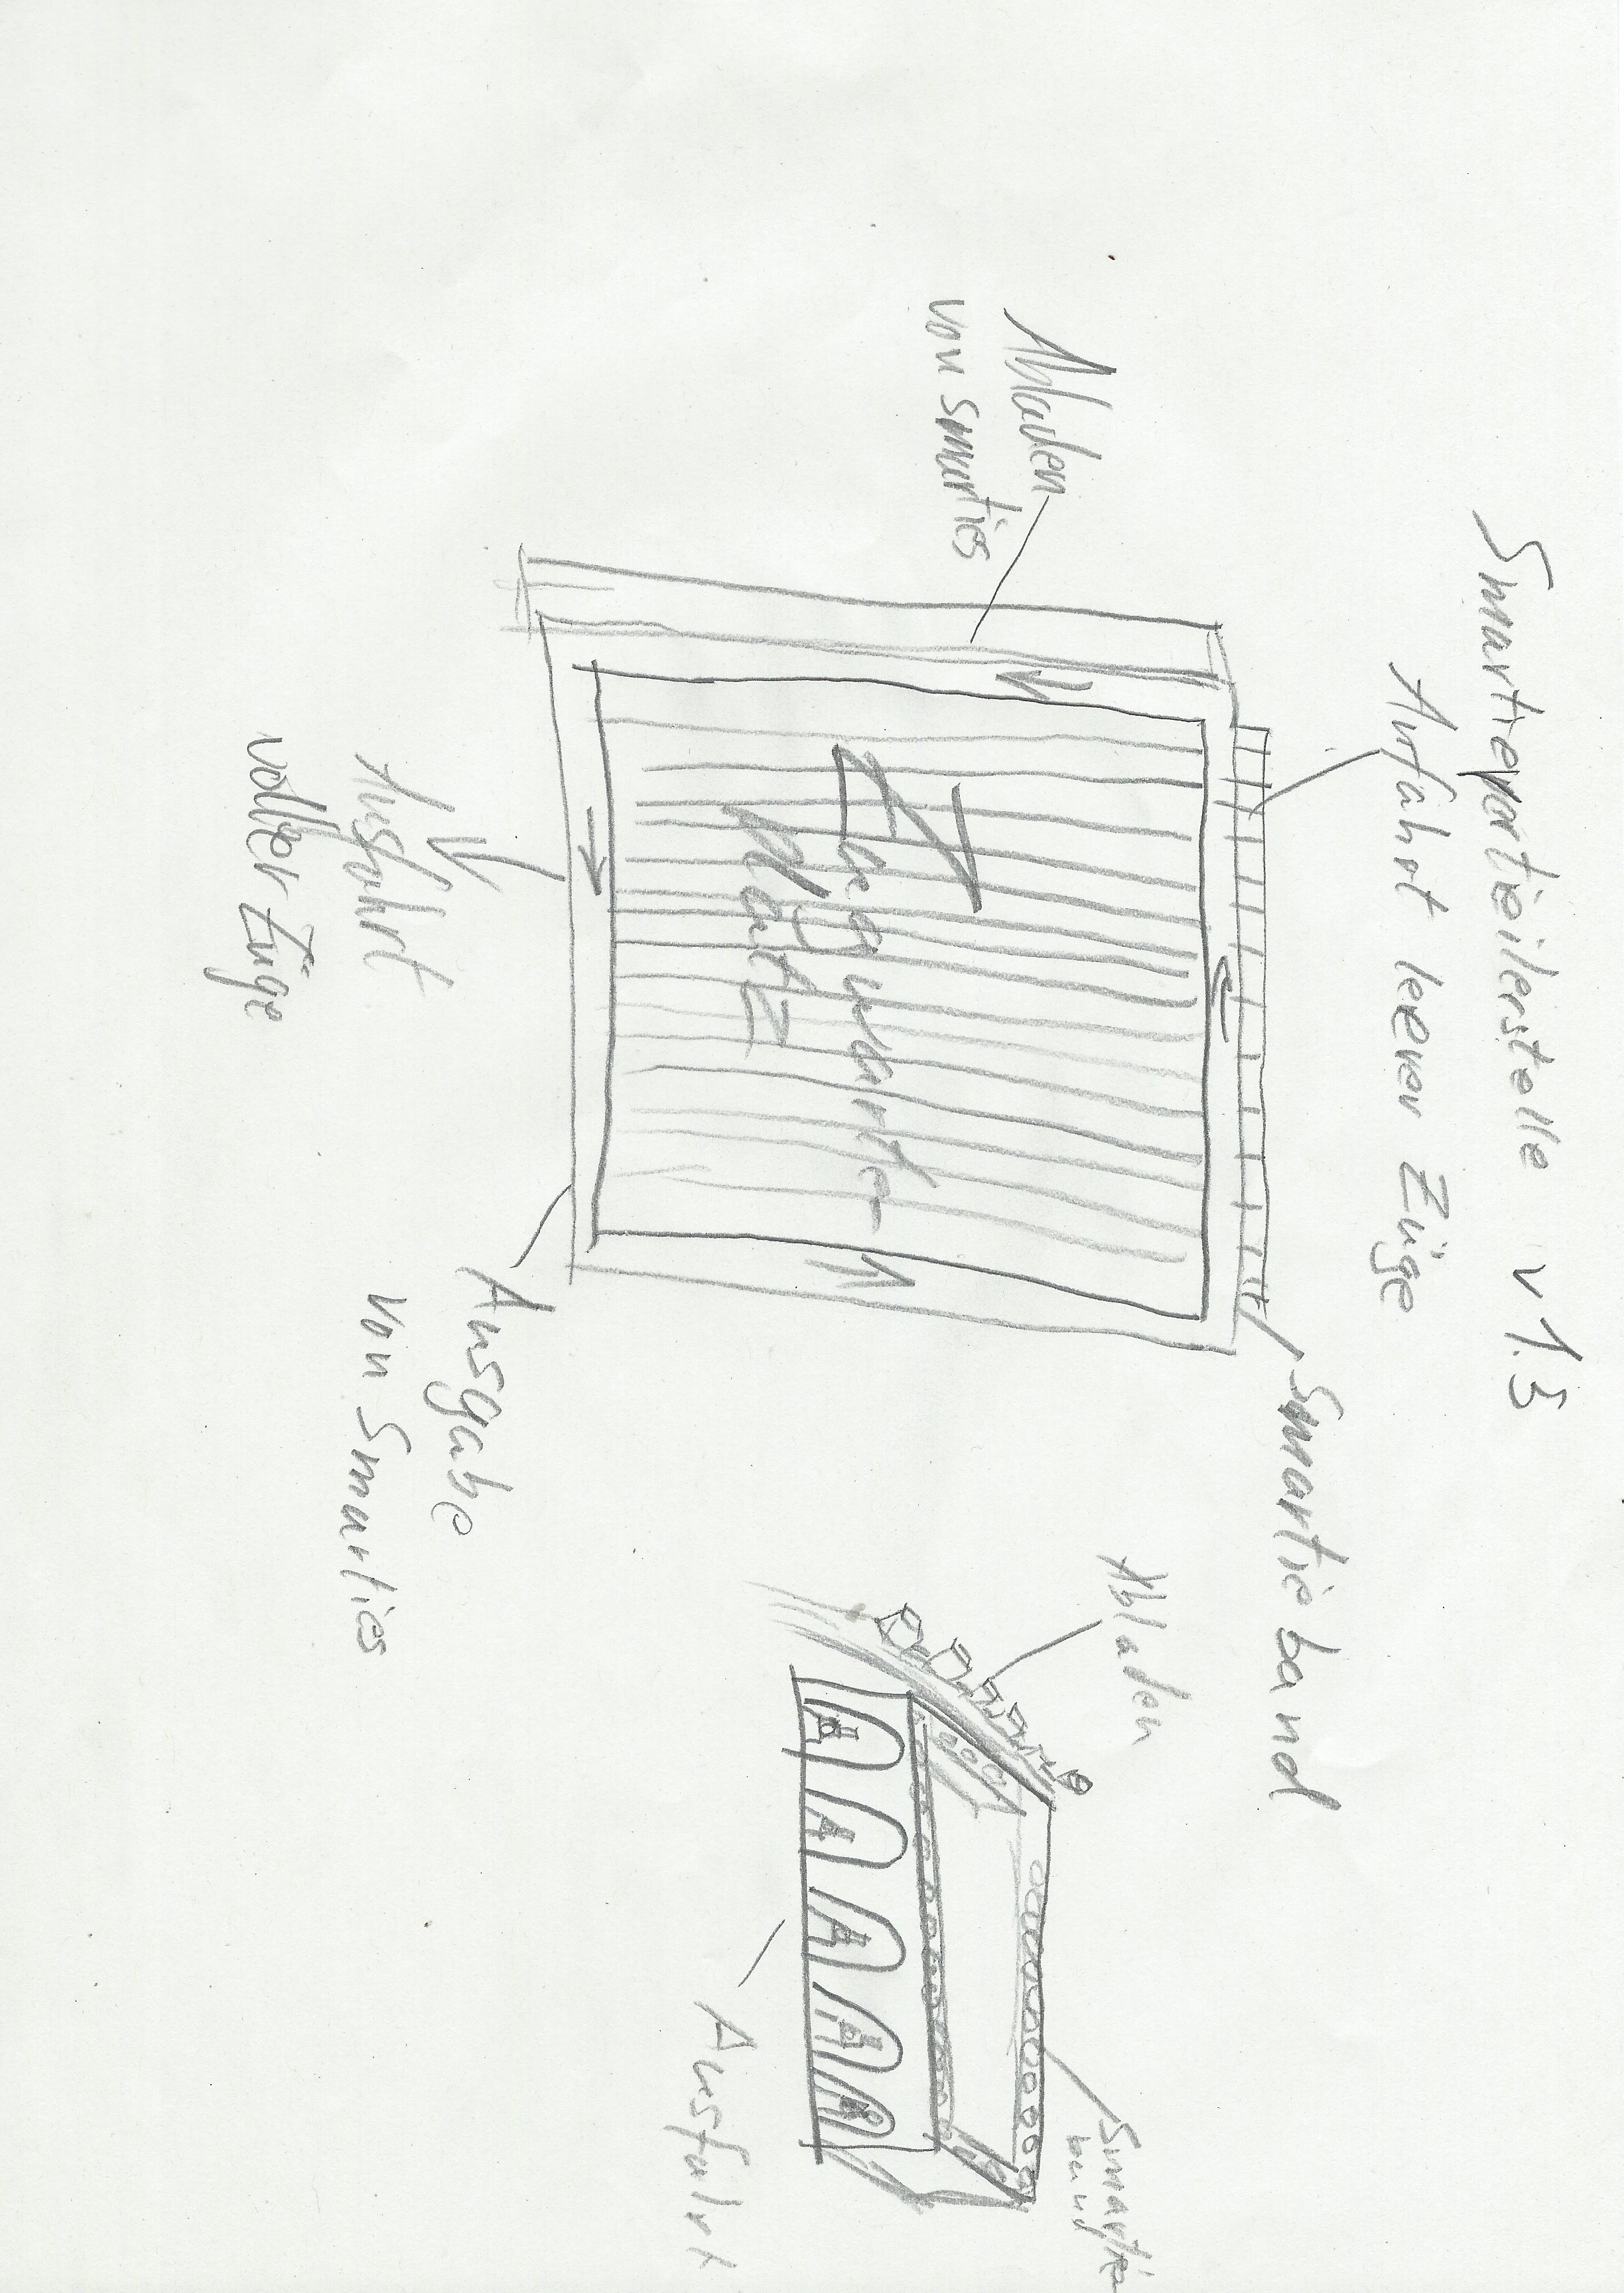 Smartieverteilerstelle v 1.5
Anfahrt leerer Züge
Smartieband
Abladen
von Smarties
Zugwarte-
platz
Ausfahrt
voller Züge
Ausgabe
von Smarties
Abladen
Smartie
band
Ausfahrt